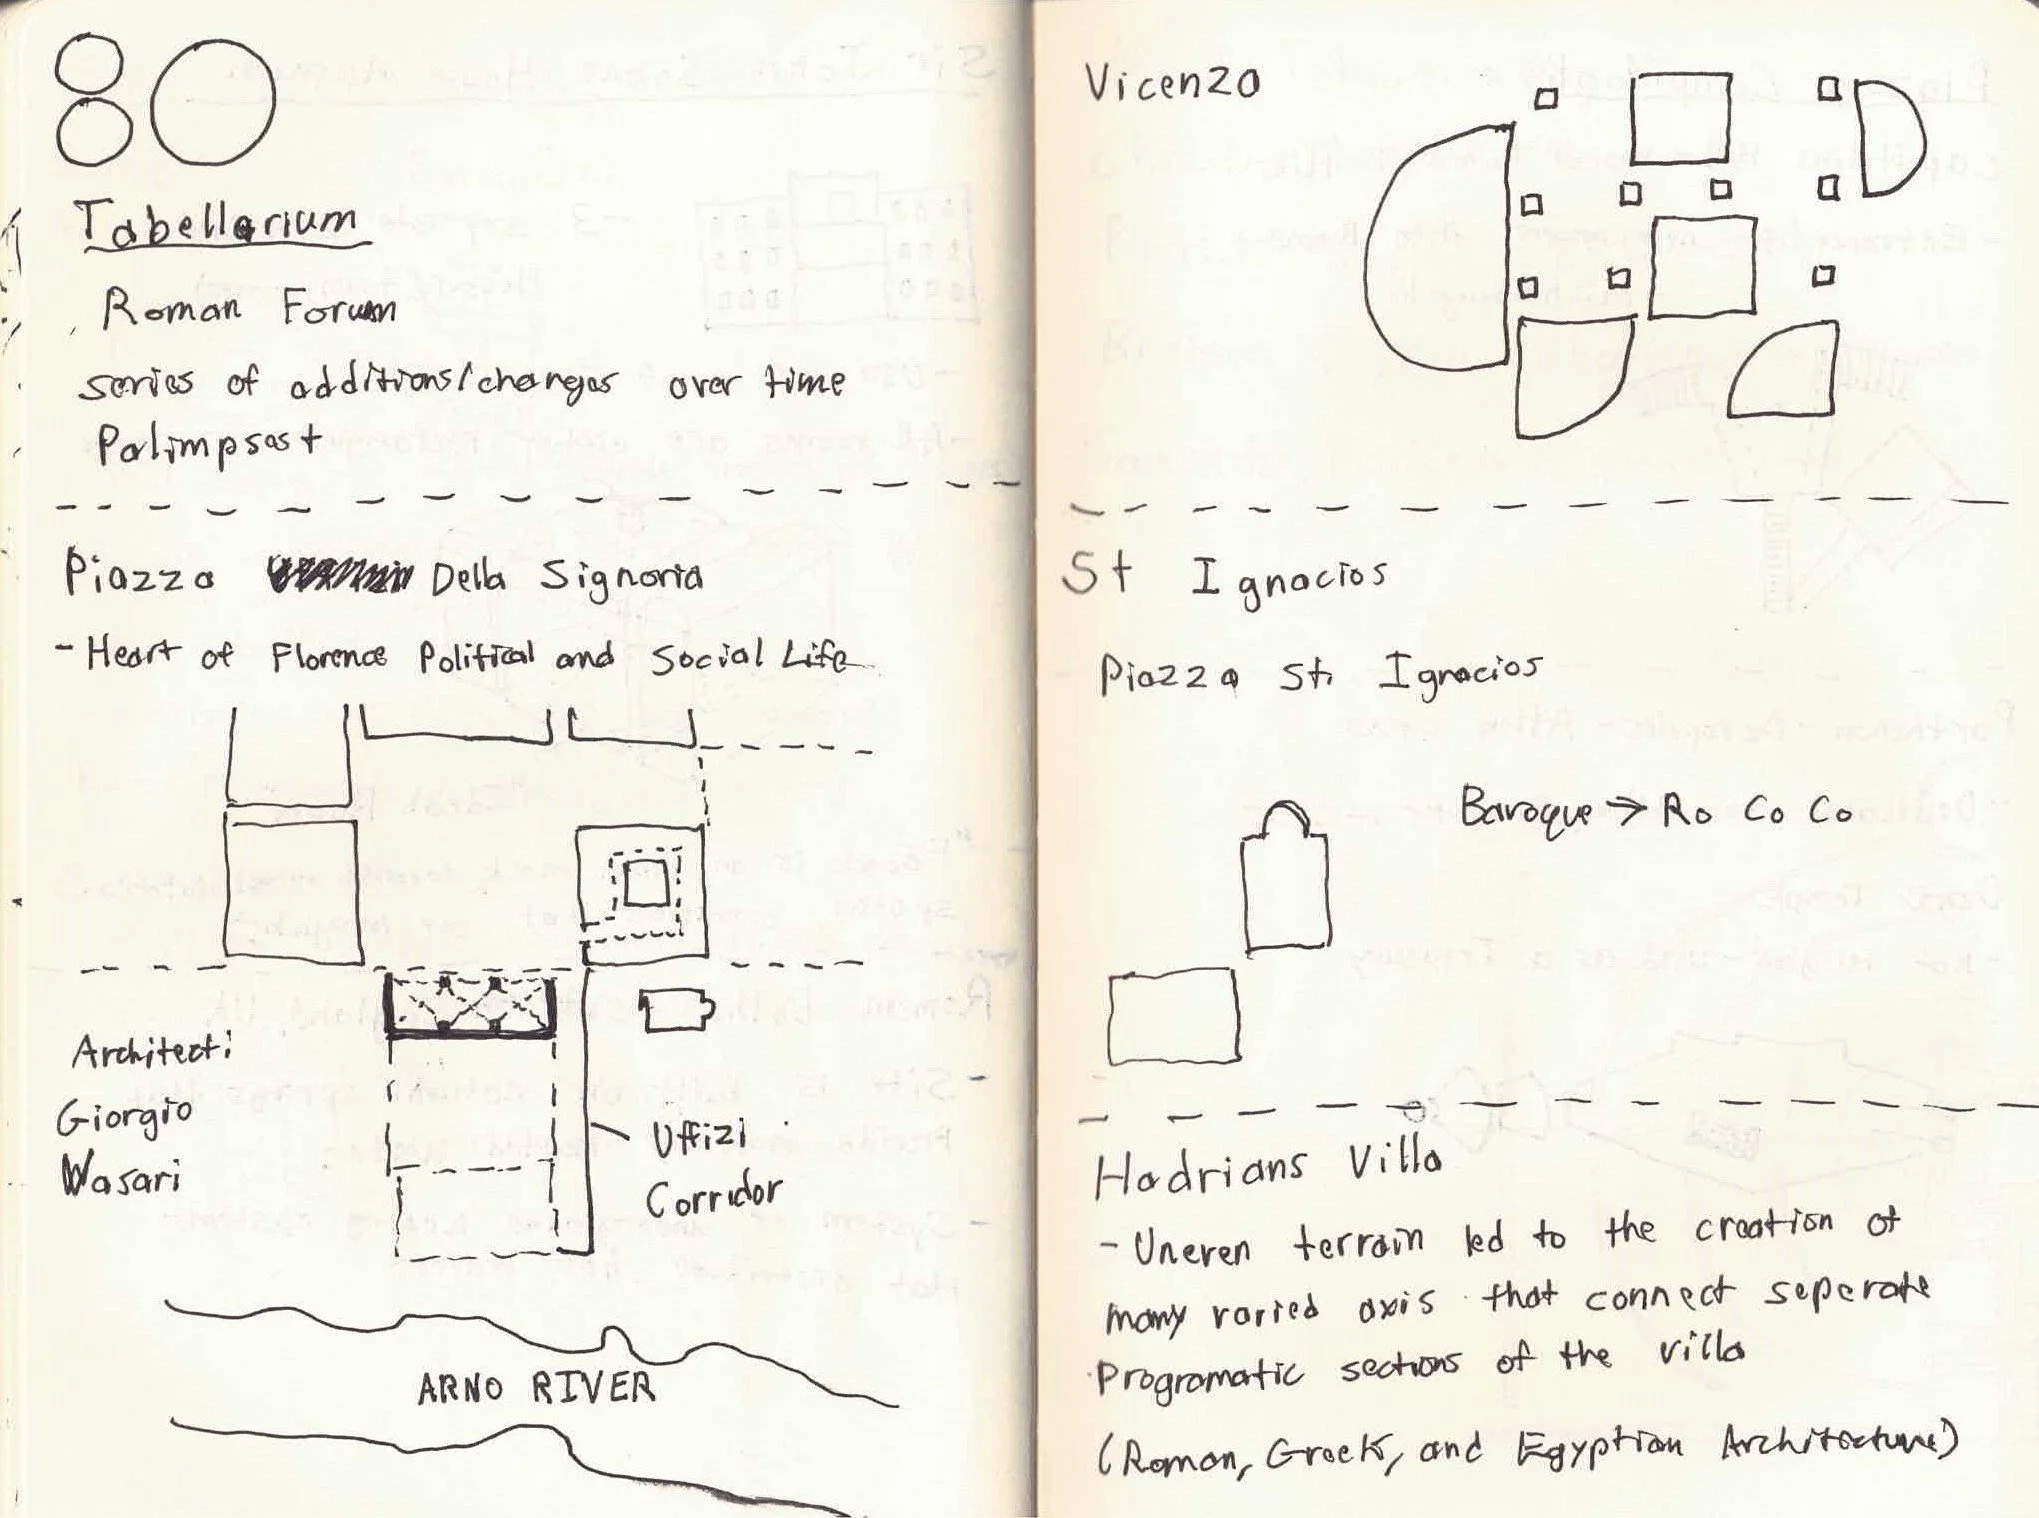 80
Tabellarium
Roman Forum
series of additions/changes over time
Palimpsest
Piazza Della Signoria
- Heart of Florence Political and Social Life
Architect:
Giorgio
Vasari
Uffizi
Corridor
ARNO RIVER
Vicenza
St Ignacios
Piazza St. Ignacios
Baroque → Ro Co Co
Hadrians Villa
- Uneven terrain led to the creation of
many varied axis that connect seperate
Programatic sections of the villa
(Roman, Greek, and Egyptian Architecture)